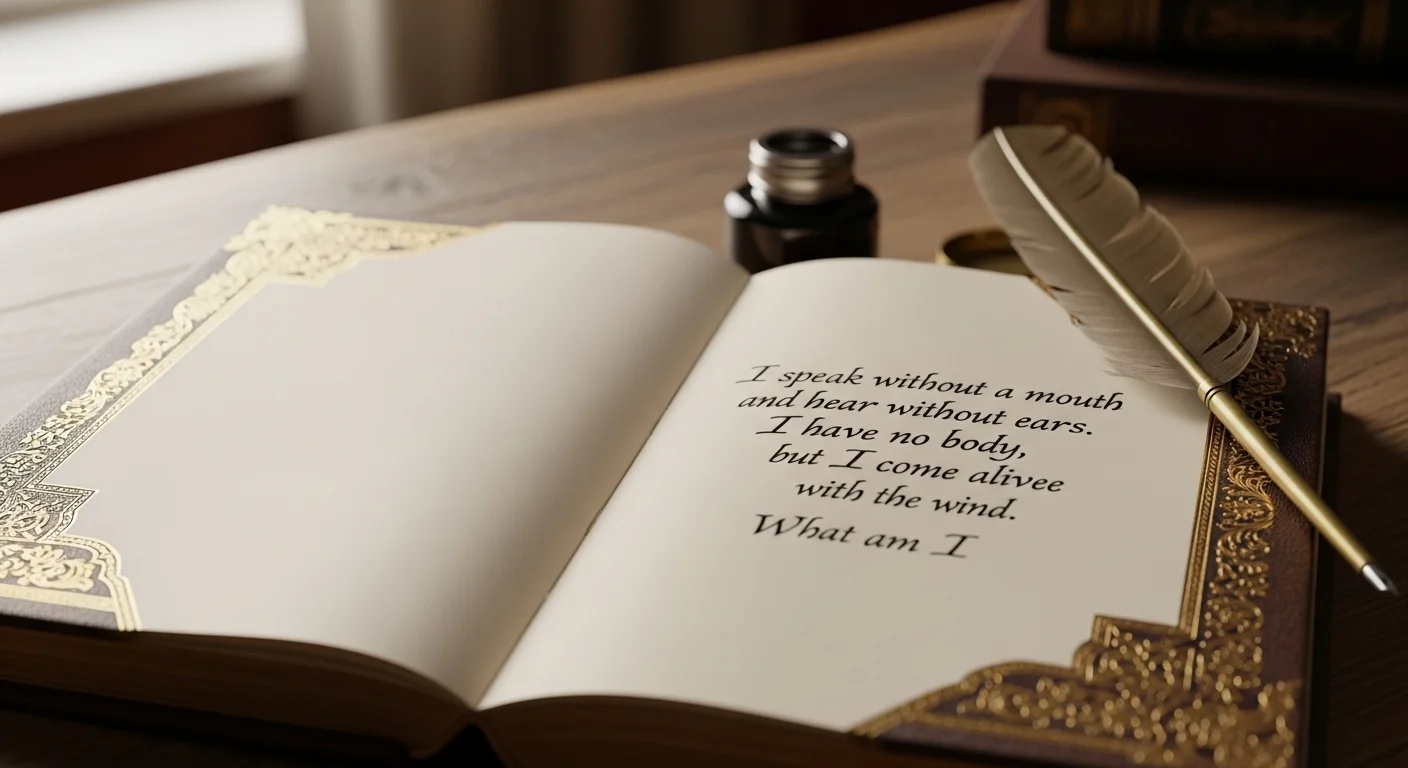 I speak without a mouth
and hear without ears.
I have no body,
but I come alivee
with the wind.
What am I